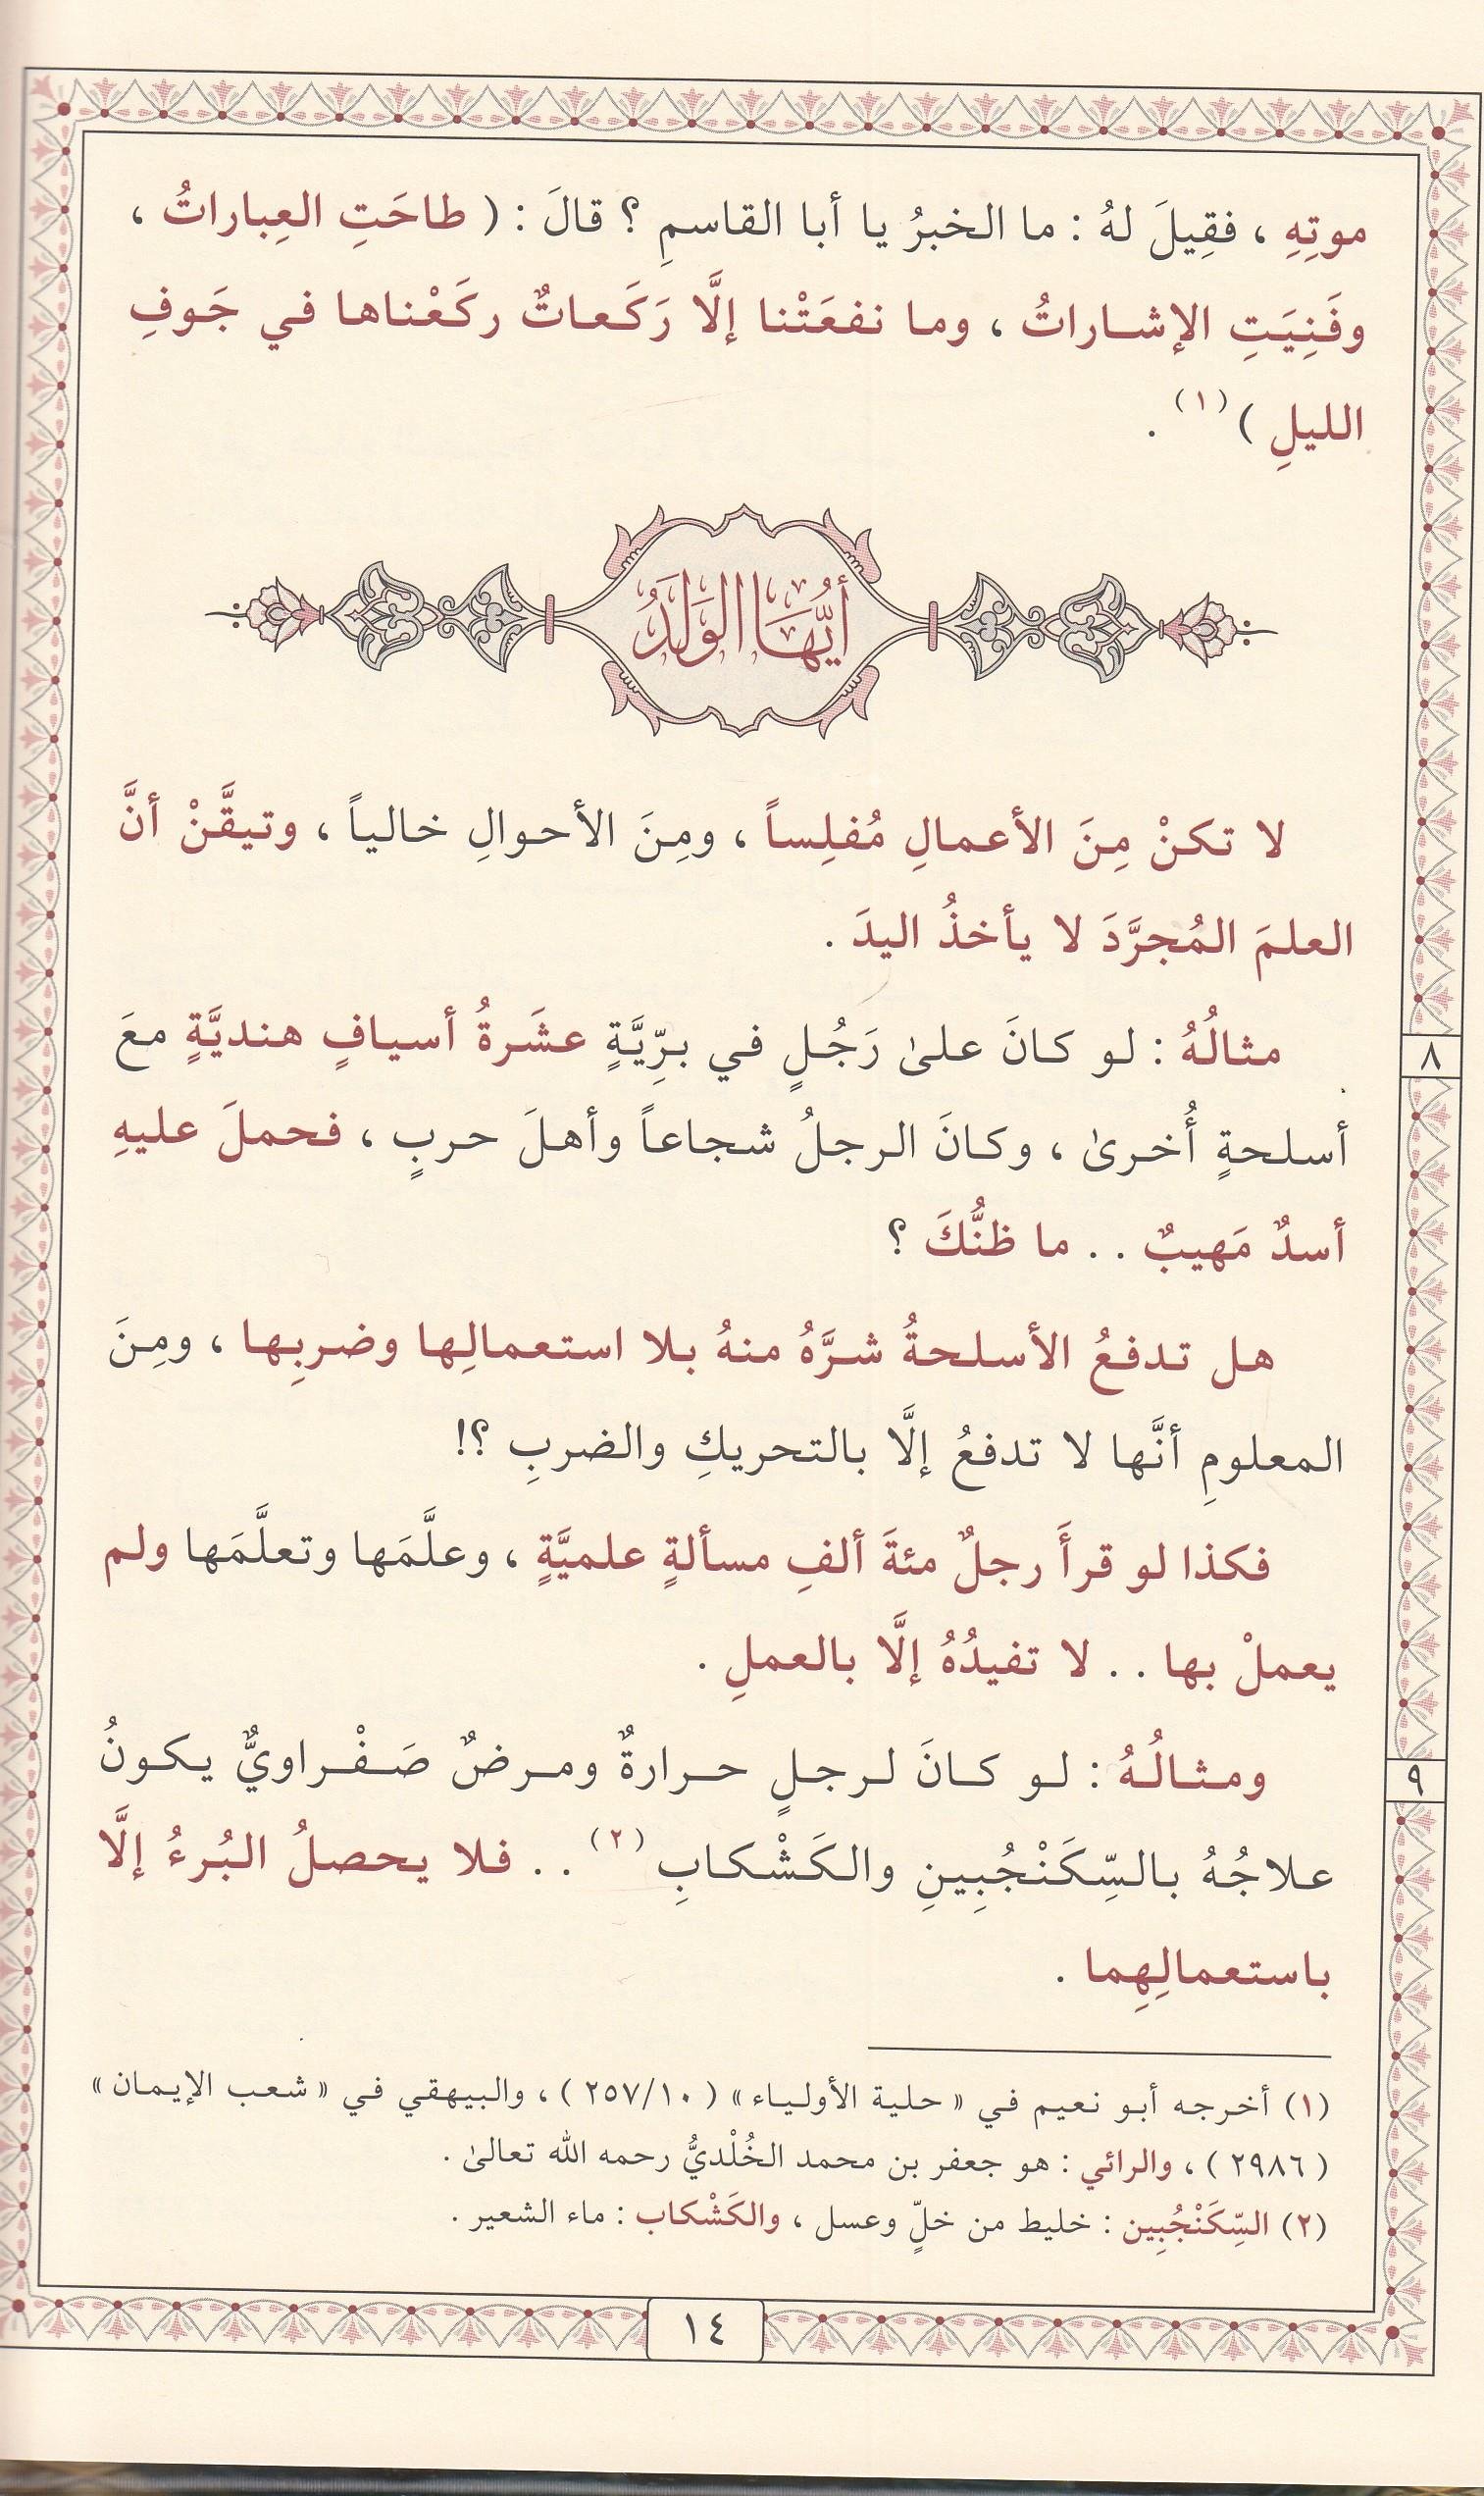 موتِهِ ، فقِيلَ لهُ : ما الخبرُ يا أبا القاسمِ ؟ قالَ : ( طاحَتِ العِباراتُ ،
وفَنِيَتِ الإشاراتُ ، وما نفعَتْنا إلَّا رَكَعاتٌ ركَعْناها في جَوفِ
الليلِ )(١) .
أيُّهَا الوَلَدُ
لا تكنْ مِنَ الأعمالِ مُفلِساً ، ومِنَ الأحوالِ خالياً ، وتيقَّنْ أنَّ
العلمَ المُجرَّدَ لا يأخذُ اليدَ .
مثالُهُ : لو كانَ علىٰ رَجُلٍ في برِّيَّةٍ عشَرةُ أسيافٍ هنديَّةٍ معَ
٨
أسلحةٍ أُخرىٰ ، وكانَ الرجلُ شجاعاً وأهلَ حربٍ ، فحملَ عليهِ
أسدٌ مَهيبٌ . . ما ظنُّكَ ؟
هل تدفعُ الأسلحةُ شرَّهُ منهُ بلا استعمالِها وضربِها ، ومِنَ
المعلومِ أنَّها لا تدفعُ إلَّا بالتحريكِ والضربِ ؟!
فكذا لو قرأَ رجلٌ مئةَ ألفِ مسألةٍ علميَّةٍ ، وعلَّمَها وتعلَّمَها ولم
يعملْ بها . . لا تفيدُهُ إلَّا بالعملِ .
ومثالُهُ : لو كانَ لرجلٍ حرارةٌ ومرضٌ صَفْراويٌّ يكونُ
٩
علاجُهُ بالسِّكَنْجُبِينِ والكَشْكابِ(٢) . . فلا يحصلُ البُرءُ إلَّا
باستعمالِهِما .
(١) أخرجه أبو نعيم في « حلية الأولياء » ( ١٠/ ٢٥٧ ) ، والبيهقي في « شعب الإيمان »
( ٢٩٨٦ ) ، والرائي : هو جعفر بن محمد الخُلْديُّ رحمه الله تعالىٰ .
(٢) السِّكَنْجُبِين : خليط من خلٍّ وعسل ، والكَشْكاب : ماء الشعير .
١٤